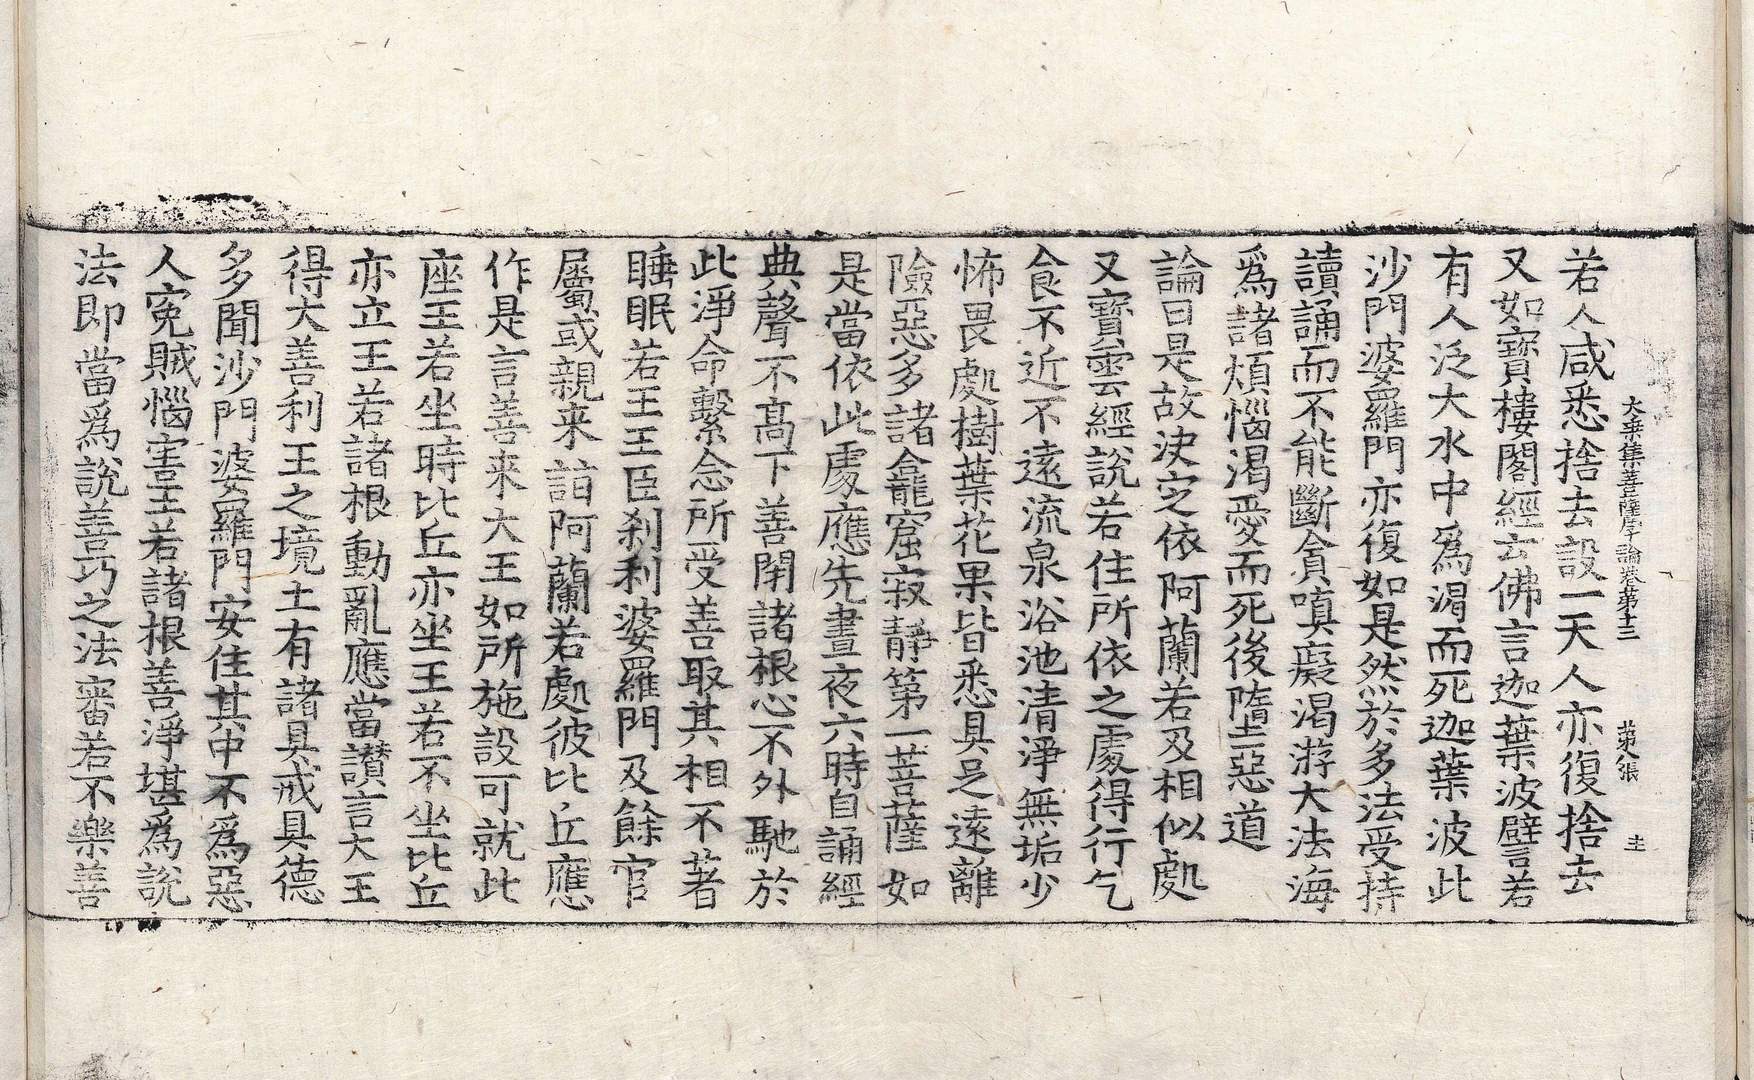 大乘集菩薩學論卷第十三 第八張 圭
若人咸悉捨去設一天人亦復捨去
又如寶樓閣經云佛言迦葉波譬若
有人泛大水中爲渴而死迦葉波此
沙門婆羅門亦復如是然於多法受持
讀誦而不能斷貪嗔癡渴游大法海
爲諸煩惱渴愛而死後墮惡道
論曰是故決定依阿蘭若及相似處
又寶雲經說若住所依之處得行乞
食不近不遠流泉浴池清淨無垢少
怖畏處樹葉花果皆悉具足遠離
險惡多諸龕窟寂靜第一菩薩如
是當依此處應先晝夜六時自誦經
典聲不高下善閉諸根心不外馳於
此淨命繫念所受善取其相不著
睡眠若王王臣剎利婆羅門及餘官
屬或親来詣阿蘭若處彼比丘應
作是言善来大王如所施設可就此
座王若坐時比丘亦坐王若不坐比丘
亦立王若諸根動亂應當讃言大王
得大善利王之境土有諸具戒具德
多聞沙門婆羅門安住其中不爲惡
人寃賊惱害王若諸根善淨堪爲說
法即當爲說善巧之法審若不樂善